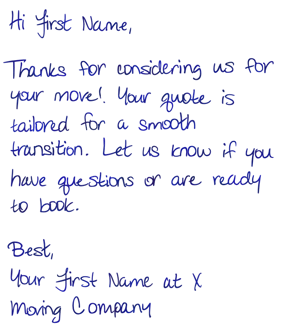 Hi First Name,
Thanks for considering us for
your move! Your quote is
tailored for a smooth
transition. Let us know if you
have questions or are ready
to book.
Best,
Your First Name at X
Moving Company